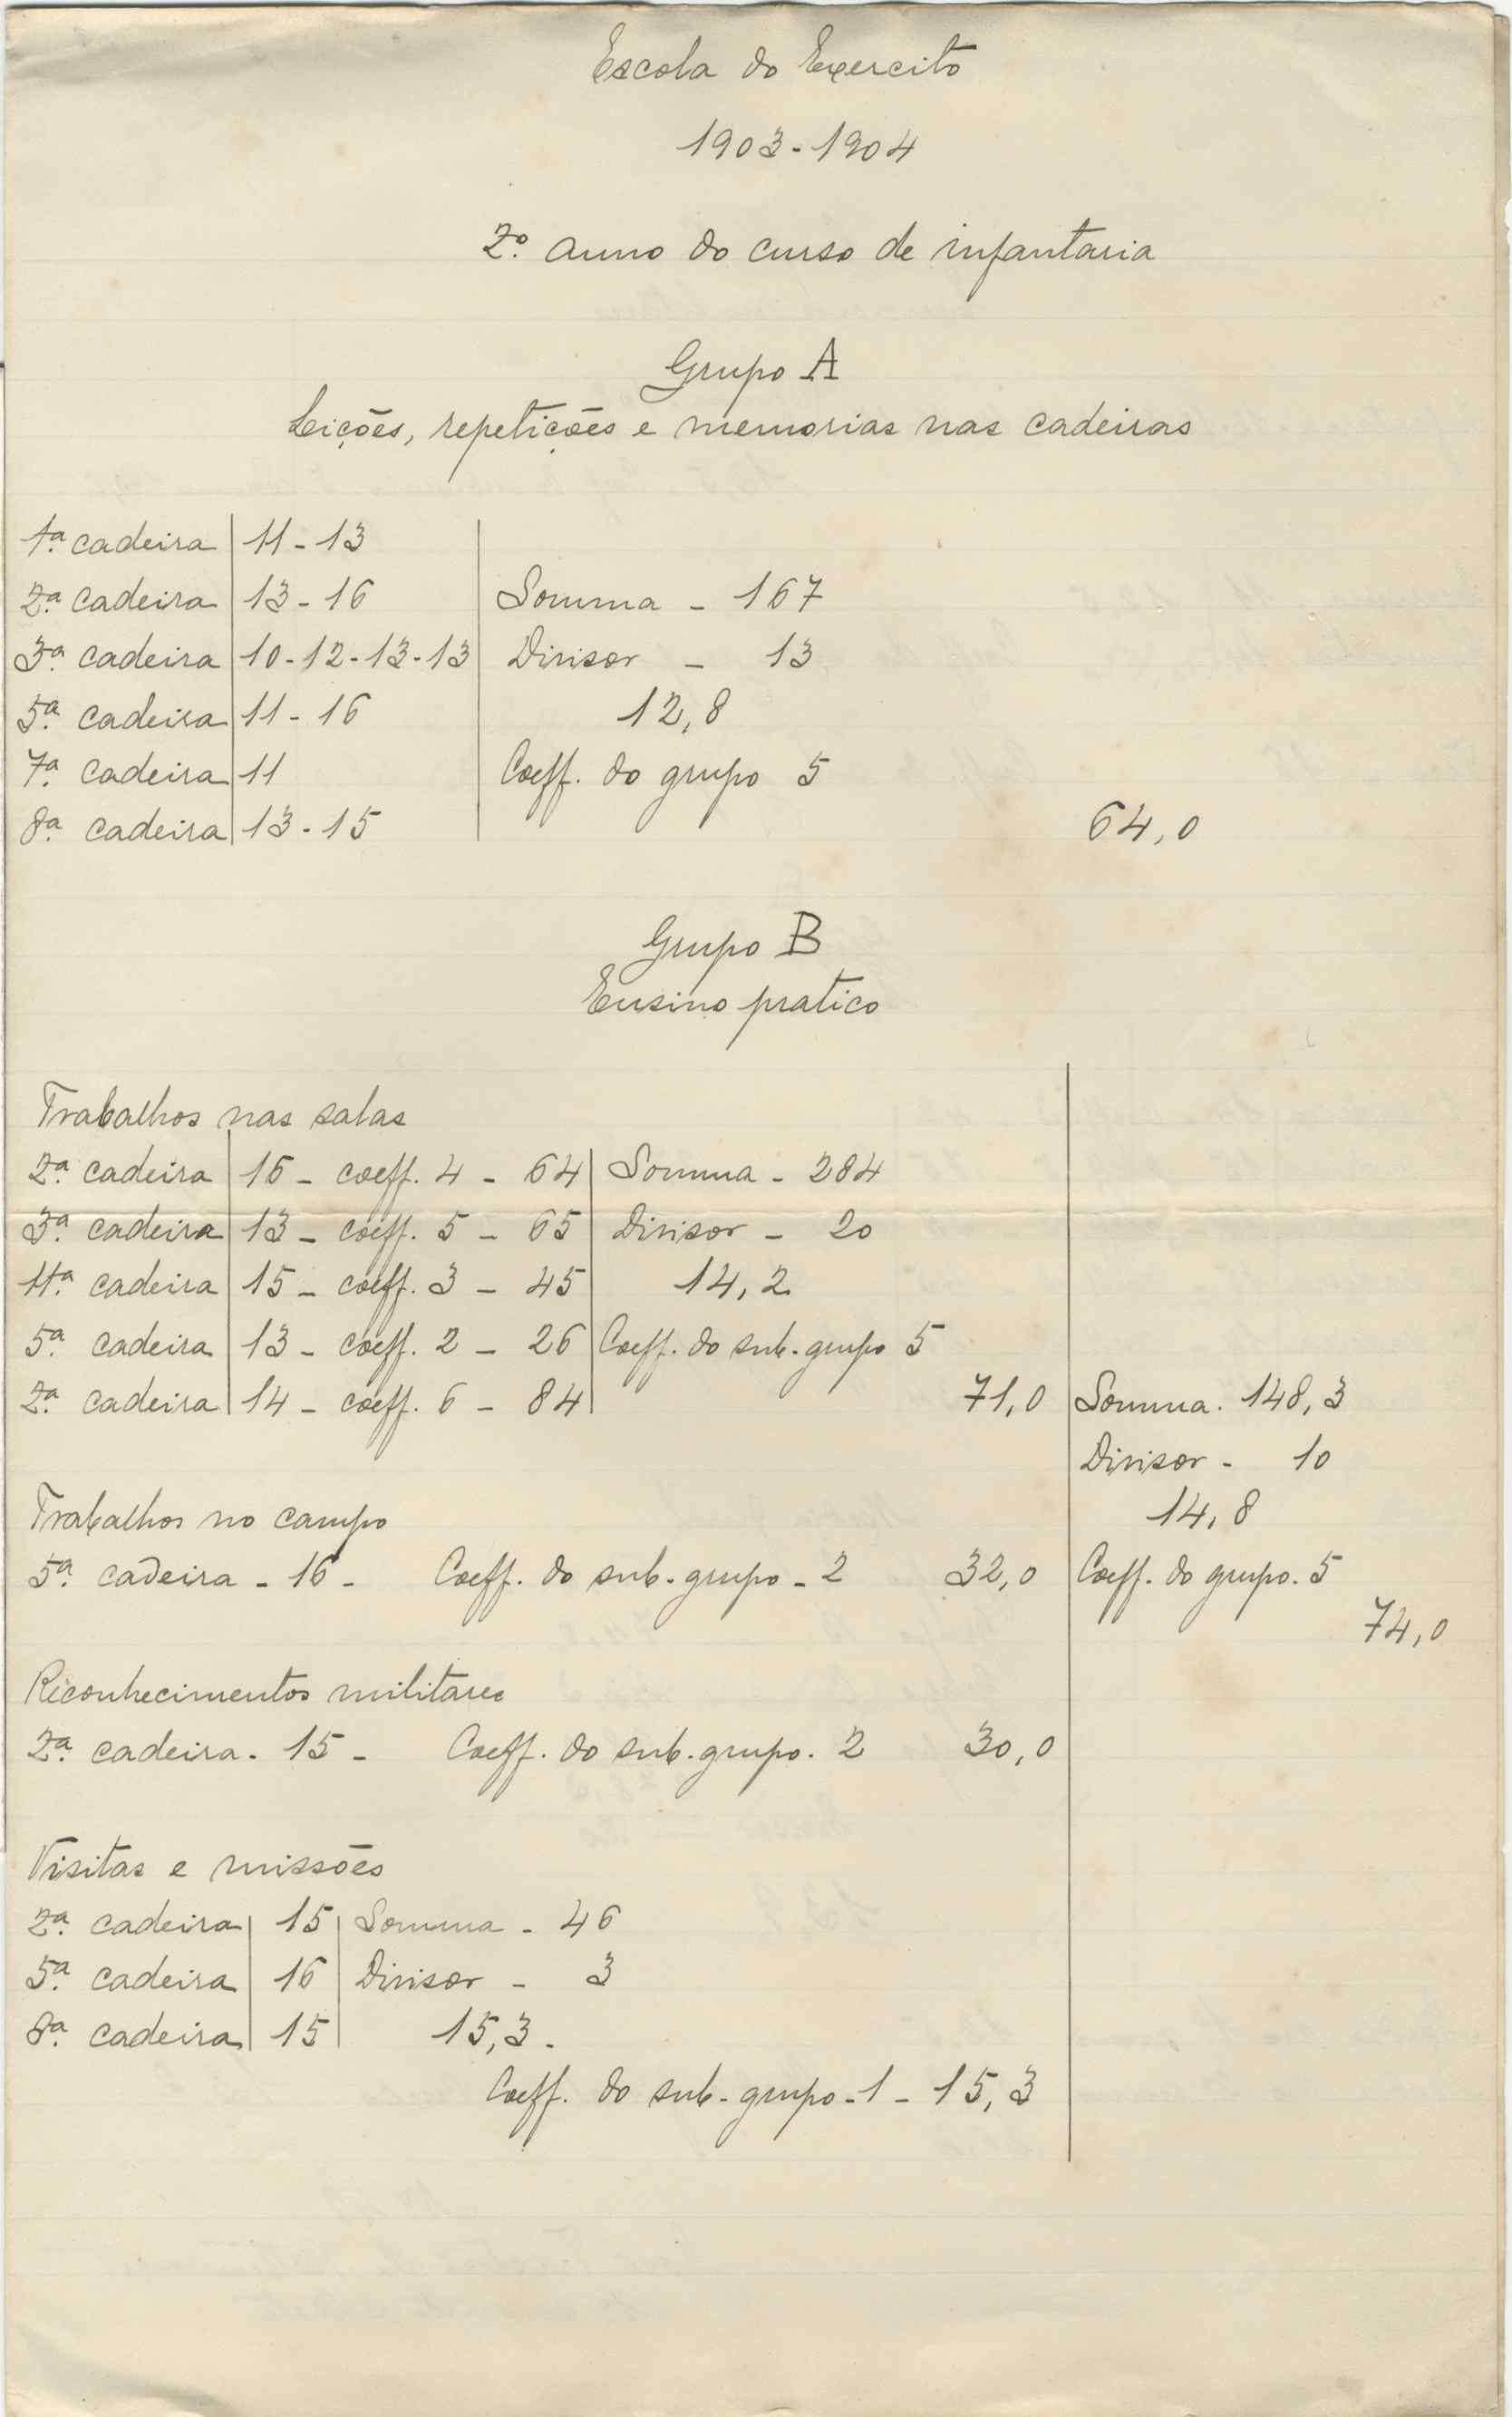 Escola do Exercito
1903-1904
2º. anno do curso de infantaria
Grupo A
Lições, repetições e memorias nas cadeiras
1ª. cadeira 11-13
2ª. cadeira 13-16 Somma - 167
3ª. cadeira 10-12-13-13 Divisor - 13
5ª. cadeira 11-16 12,8
7ª. cadeira 11 Coeff. do grupo 5
8ª. cadeira 13-15 64,0
Grupo B
Ensino pratico
Trabalhos nas salas
2ª. cadeira 16 - coeff. 4 - 64 Somma - 284
3ª. cadeira 13 - coeff. 5 - 65 Divisor - 20
4ª. cadeira 15 - coeff. 3 - 45 14,2
5ª. cadeira 13 - coeff. 2 - 26 Coeff. do sub-grupo 5
2ª. cadeira 14 - coeff. 6 - 84 71,0 Somma. 148,3
Divisor - 10
Trabalhos no campo 14,8
5ª. cadeira - 16 - Coeff. do sub-grupo - 2 32,0 Coeff. do grupo. 5
74,0
Reconhecimentos militares
2ª. cadeira. 15 - Coeff. do sub-grupo. 2 30,0
Visitas e missões
2ª. cadeira 15 Somma - 46
5ª. cadeira 16 Divisor - 3
8ª. cadeira 15 15,3.
Coeff. do sub-grupo - 1 - 15,3